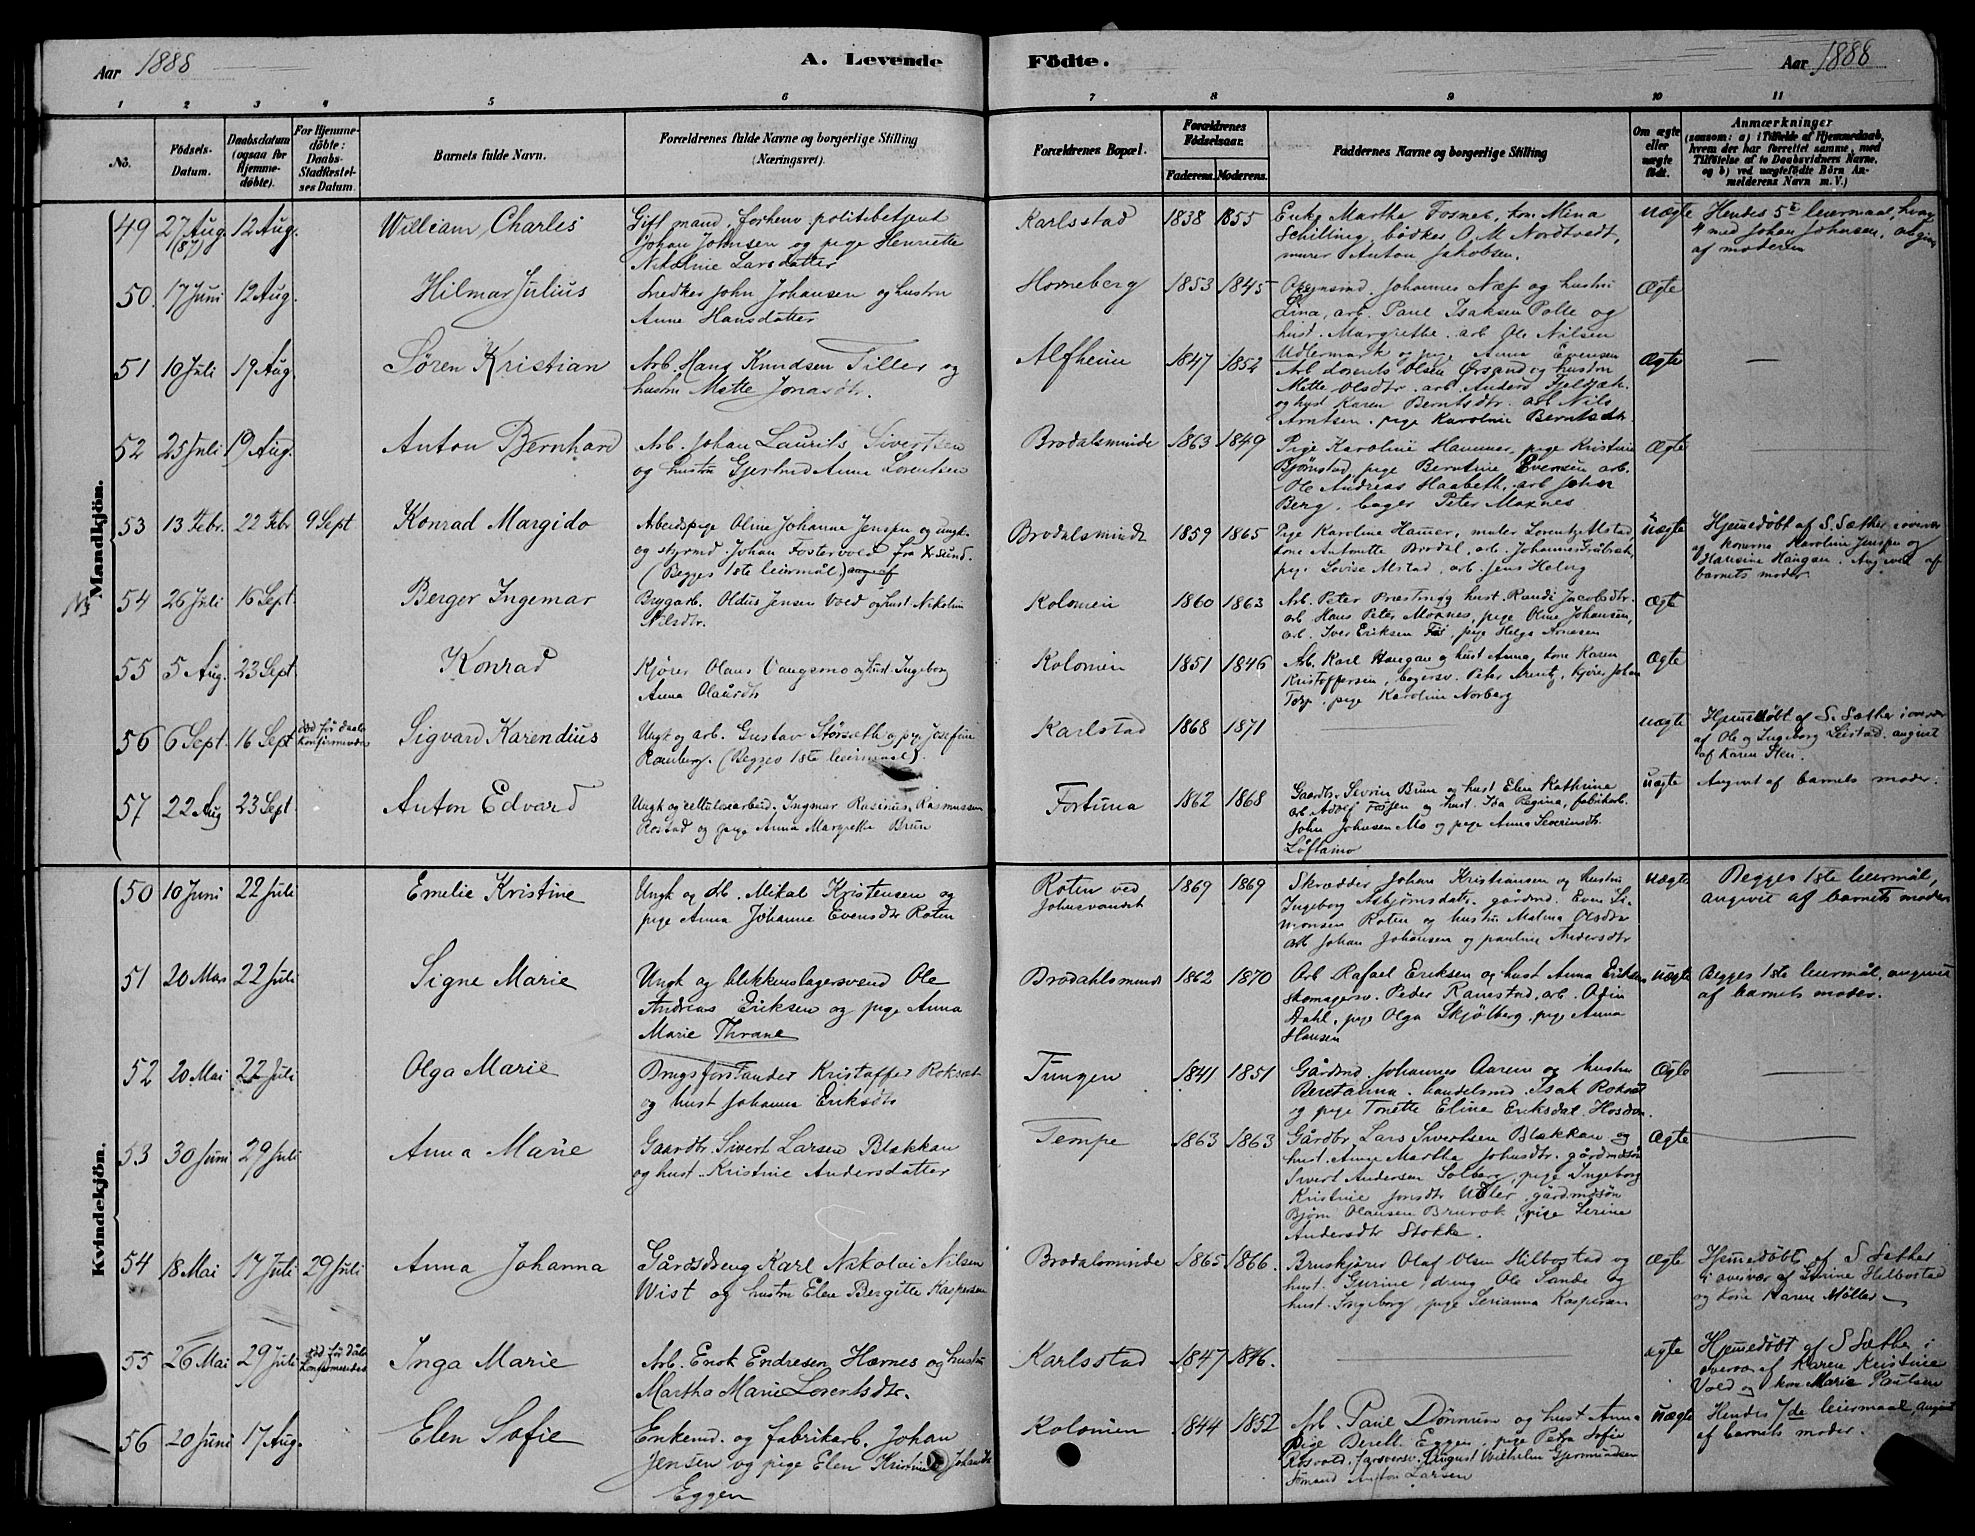 Aar 1888
A. Levende
Födte.
Aar 1888
1 2 3 4 5 6 7 8 9 10 11
No.
Födsels-Datum.
Daabsdatum (ogsaa for Hjemme-döbte).
For Hjemme-döbte: Daabs-Stadfæstel-ses Datum.
Barnets fulde Navn.
Forældrenes fulde Navne og borgerlige Stilling (Næringsvei).
Forældrenes Bopæl.
Forældrenes Födselsaar.
Faderens. Moderens.
Faddernes Navne og borgerlige Stilling
Om ægte eller uægte födt.
Anmærkninger
(saasom: a) i Tilfælde af Hjemmedaab,
hvem der har forrettet samme, med
Tilföielse af to Daabsvidners Navne,
og b) ved uægtefödte Börn An-
melderens Navn m. V.)
Mandkjön.
49 27 Aug. (87) 12 Aug. William Charles
Gift mand, forhenv. politibetjent
Johan Johnsen og pige Henriette
Nikoline Larsdatter
Karlsstad 1838 1855
Enke Marthe Fosnes, kone Mina
Schilling, bødker O. M. Nordtvedt,
murer Anton Jakobsen.
uægte
Hendes 5te leiermaal, hvoraf
4 med Johan Johnsen, angivet
af moderen
50. 17 Juni 12 Aug. Hilmar Julius
Snedker John Johansen og hustru
Anne Hansdatter
Horneberg 1853 1845
Johannes Næss og hustru
Lina, arb. Paul Isaksen Polle og
hust. Margrethe, arb Ole Nilsen
Udlermark og pige Anna Evensen
Ægte
51 10 Juli 19 Aug. Søren Kristian
Arb. Hans Knudsen Tiller og
hustru Mette Jonasdtr.
Alfheim 1847 1852
Arb. Lorents Olsen Ørsand og hustru
Mette Olsdtr. arb. Anders
og hust Karen Berntsdtr. arb Nils
Arntsen. pige Karoline Berntsdtr.
Ægte
52 25 Juli 19 Aug. Anton Bernhard
Arb. Johan Laurits Sivertsen
og hustru Gjertrud Anna Lorentsen
Brodalsminde 1863 1849
Pige Karoline Hammer, pige Kristine
Bjørnstad, pige Berntine Evensen arb.
Ole Andreas Haabeth, arb. John
Berg, bager Peter Moxnes
Ægte
53 13 Febr. 22 Febr 9 Sept Konrad Margido
Arbeidspige Oline Johanna Jensen og ungk.
og styrmd. Johan Fostervold fra X-sund.
(Begges 1ste leiermål) ang af
Brodalsminde 1859 1865
Pige Karoline Hamer, maler Lorents Alstad,
kone Antonette Brodal, arb. Johannes
pige Lovise Alstad, arb. Jens Helvig
Uægte
Hjemedøbt af S. Sæther i overvær
af konerne Karoline Jensen og
Hansine Haugan. Angivet af
barnets moder.
54 26 Juli 16 Sept. Berger Ingemar
Brygarb. Oldus Jensen Vold og hust Nikoline
Nilsdtr.
Kolonien 1860 1863
Arb. Peter Præstmo og hust. Randi Jacobsdtr.
arb Hans Peter Moxnes, pige Oline Johansen,
arb. Iver Eriksen, pige Helga Arnesen
Ægte
55 5 Aug. 23 Sept. Konrad
Kjører Olaus Vangsmo og hust. Ingeborg
Anna Olausdtr
Kolonien 1851 1846
Arb. Karl Haugan og hust Anna, kone Karen
Kristoffersen, bagersv. Peter Arentz, kjører Johan
Torp, pige Karoline Norberg
Ægte
56 6 Sept. 16 Sept død før daabs konfirmeredes Sigvard Karendius
Ungk og arb. Gustav Størseth og pige Josefine
Ramberg. (Begges 1ste leiermaal).
Karlstad 1868 1871
uægte
Hjemmedøbt af S. Sæther i overvær
af Ole og Ingeborg Leistad. angivet
af Karen Sten.
57 22 Aug 23 Sept Anton Edvard
Ungk og cellulosearbeid. Ingmar Rasmus Rasmussen
Rostad og pige Anna Margrethe Brun
Fortuna 1862 1868
Gaardbr. Sevrin Brun og hust Elen Kathrina
arb Adolf Fossen og hust. Ida Regina, fabrikarb.
John Johnsen Mo og pige Anna Severinsdtr.
Løftamo
uægte
Angivet af barnets moder.
Kvindekjön.
50 10 Juni 22 Juli Emelie Kristine
Ungk og arb. Mikal Kristensen og
pige Anna Johanne Evensdtr Roten
Roten ved
Johnsvandet
1869 1869
Skrædder Johan Kristiansen og hustru
Ingeborg Asbjørnsdatr. gårdmd. Even Si-
monsen Roten og hustru Malina Olsdtr
arb Johan Johansen og pauline Andersdtr
uægte
Begges 1ste leiermål,
angivet af barnets moder
51 20 Mars 22 Juli Signe Marie
Ungk og blikkenslagersvend Ole
Andreas Eriksen og pige Anna
Marie Thrane
Brodahlsminde 1862 1870
Arb Rafael Eriksen og hust Anna Eriksen
skomagersv. Peder Ranestad, arb. Odin
Dahl, pige Olga Skjølberg, pige Anna
Hansen
uægte
Begges 1ste leiermål, angivet
af barnets moder.
52 20 Mai 22 Juli Olga Marie
Brugsforstander Kristoffer Rokseth
og hust Johanna Eriksdtr
Tungen 1841 1851
Gårdmd. Johannes Aaren og hustru
Beretanna. handelsmd. Isak Rokseth
og pige Tonette Eline Eriksdat. Hosdon.
Ægte
53 30 Juni 29 Juli Anna Marie
Gaardbr. Sivert Larsen Blækkan
og hust. Kristine Andersdatter
Tempe 1863 1863
Gårdbr. Lars Sivertsen Blækkan og
hust. Anne Martha Johnsdtr. gårdmdsøn
Sivert Andersen Solberg, pige Ingeborg
Kristine Jonsdtr Udler, gårdmdsøn
Bjørn Olausen Bruvok, pige Serine
Andersdtr Stokke.
Ægte
54 18 Mai 17 Juli 29 Juli Anna Johanna
Gårdsdreng Karl Nikolai Nilsen
Wist og hustru Elen Bergitte Kaspersen
Brodalsminde 1865 1866.
Bruskjører Olaf Olsen Hilbostad og
hust. Gurine, dreng Ole Sande og
hust. Ingeborg, pige Serianna Kaspersen
ægte
Hjemmedøbt af S Sæther
i overvær af Gurine Helbostad
og kone Karen Møller
55 26 Mai 29 Juli død før dåb konfirmeredes Inga Marie
Arb. Enok Endresen Hærnes og hustru
Martha Marie Lorentsdtr.
Karlsstad 1847 1846.
ægte
Hjemedøbt af S Sæther i
overvær af Karen Kristine
Vold og kone Marie Paulsen
56 20 Juni 17 Aug. Elen Sofie
Enkemd. og fabrikarb. Johan
Jensen og pige Elen Kristine Johansdtr
Eggen
Kolonien 1844 1852
Arb. Paul Dønnum og hust Anna
pige Berett. Eggen, pige Petra Sofie
Rosvold, farversv. August Wilhelm Gjermundsen
Sømand Anton Larsen
uægte
Hendes 7de leiermaal, angivet
af barnets moder.